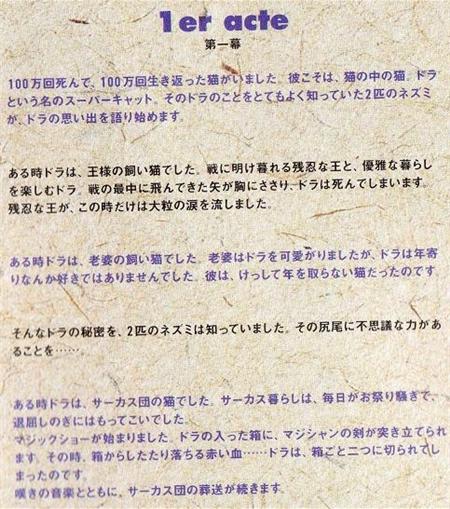 1er acte
第一幕
100万回死んで、100万回生き返った猫がいました。彼こそは、猫の中の猫。ドラ
という名のスーパーキャット。そのドラのことをとてもよく知っていた2匹のネズミ
が、ドラの思い出を語り始めます。
ある時ドラは、王様の飼い猫でした。戦に明け暮れる残忍な王と、優雅な暮らし
を楽しむドラ。戦の最中に飛んできた矢が胸にささり、ドラは死んでしまいます。
残忍な王が、この時だけは大粒の涙を流しました。
ある時ドラは、老婆の飼い猫でした。老婆はドラを可愛がりましたが、ドラは年寄
りなんか好きではありませんでした。彼は、けっして年を取らない猫だったのです。
そんなドラの秘密を、2匹のネズミは知っていました。その尻尾に不思議な力があ
ることを……。
ある時ドラは、サーカス団の猫でした。サーカス暮らしは、毎日がお祭り騒ぎで、
退屈しのぎにはもってこいでした。
マジックショーが始まりました。ドラの入った箱に、マジシャンの剣が突き立てられ
ます。その時、箱からしたたり落ちる赤い血……ドラは、箱ごと二つに切られてし
まったのです。
嘆きの音楽とともに、サーカス団の葬送が続きます。